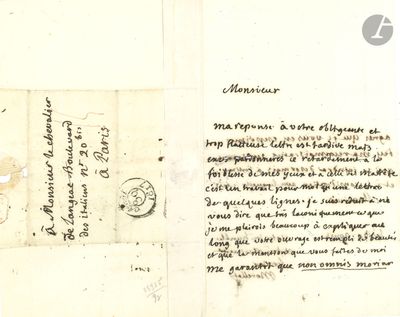 Monsieur
ma reponse à votre obligeante et
trop flateuse lettre est tardive mais
pardonnerez ce retardement à la
foiblesse de mes yeux et à
c'est un travail pour moi qu'une lettre
de quelques lignes. je suis réduit à ne
vous dire que très laconiquement ce que
je me plairois beaucoup à expliquer au
long que votre ouvrage est rempli de beautés
et que la mention que vous faites de moi
me garantit que non omnis moriar
à Monsieur le chevalier
de Langeac Boulevard
des italiens n° 20 bis
à Paris